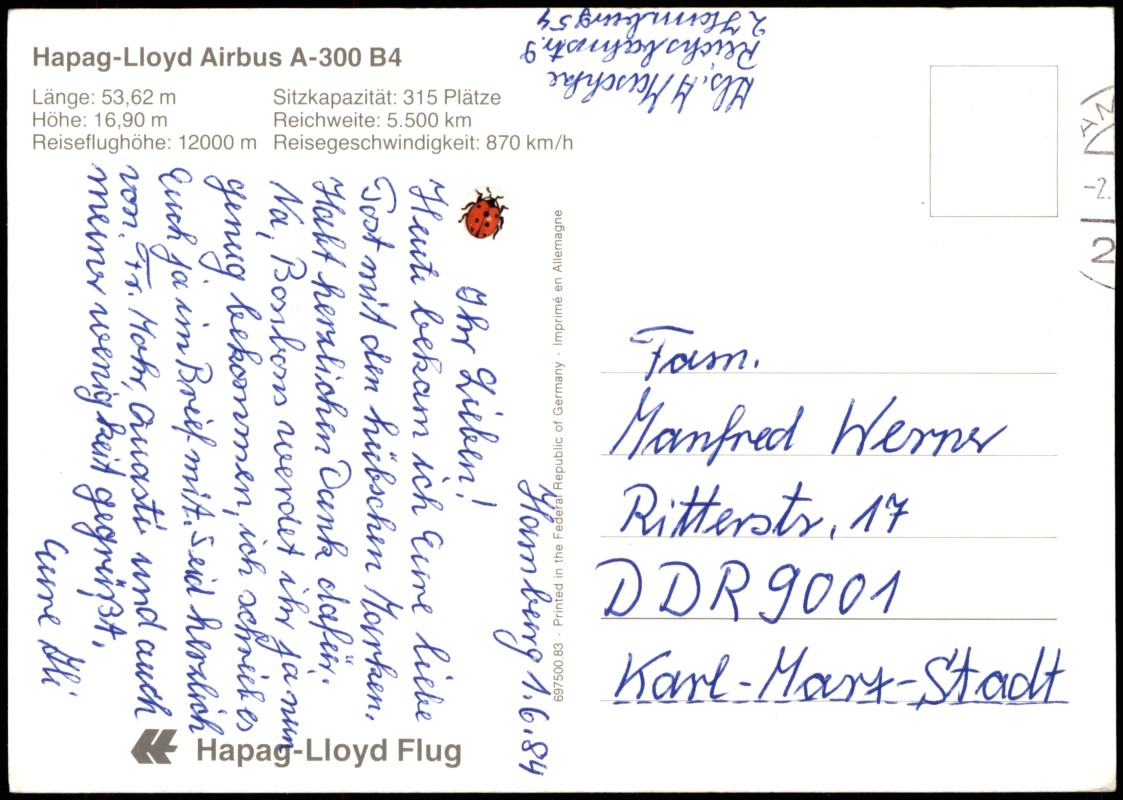 Hapag-Lloyd Airbus A-300 B4
Länge: 53,62 m
Höhe: 16,90 m
Reiseflughöhe: 12000 m
Sitzkapazität: 315 Plätze
Reichweite: 5.500 km
Reisegeschwindigkeit: 870 km/h
Reichsbahnstr. 9
2 Hamburg 54
Hamburg 1.6.84
Ihr Lieben!
Heute bekam ich Eure liebe
Post mit den hübschen Marken.
Habt herzlichen Dank dafür.
Na, Bonbons werdet ihr ja nun
genug bekommen, ich schrieb es
Euch ja im Brief mit. Seid herzlich
von Fr. Mohr, und auch
meiner wenigkeit gegrüßt,
Eure Illi
697500.83 · Printed in the Federal Republic of Germany · Imprimé en Allemagne
Hapag-Lloyd Flug
Fam.
Manfred Werner
Ritterstr. 17
DDR 9001
Karl-Marx-Stadt
-2.
2